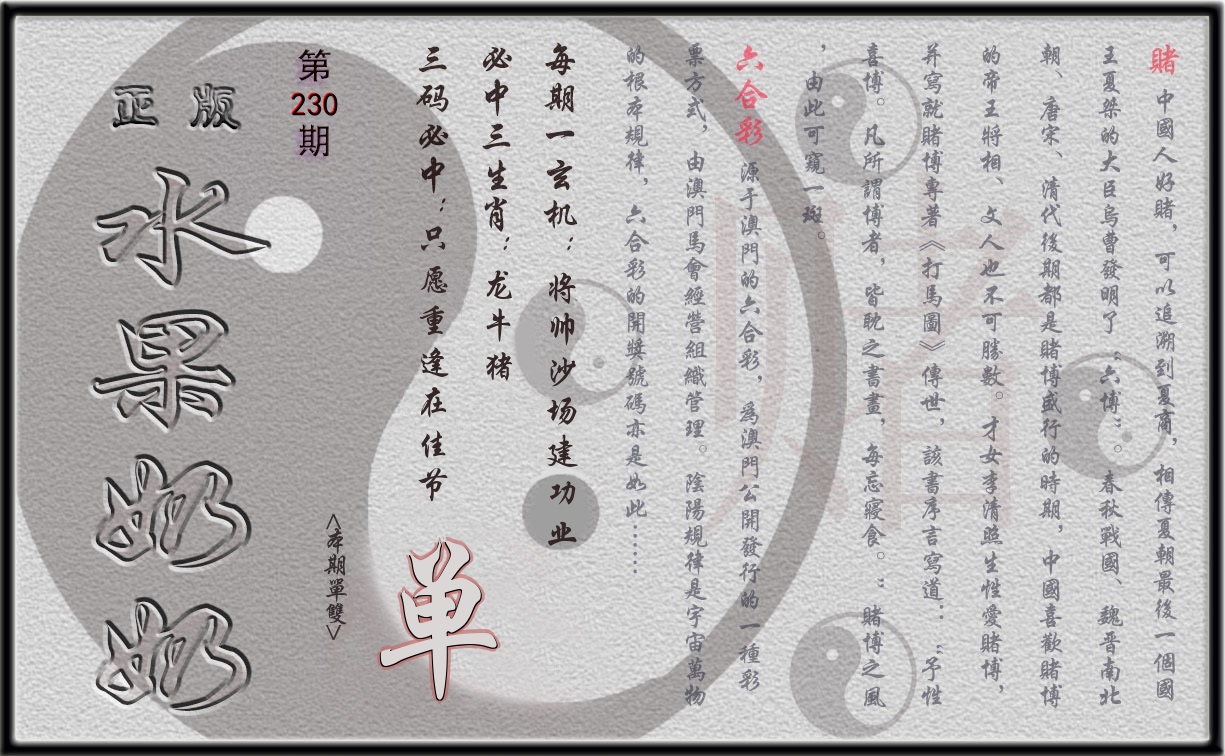 賭 中國人好賭，可以追溯到夏商，相傳夏朝最後一個國
王夏桀的大臣烏曹發明了“六博”。春秋戰國、魏晉南北
朝、唐宋、清代後期都是賭博盛行的時期，中國喜歡賭博
的帝王將相、文人也不可勝數。才女李清照生性愛賭博，
并寫就賭博專著《打馬圖》傳世，該書序言寫道：“予性
喜博。凡所謂博者，皆耽之書畫，每忘寢食。”賭博之風
，由此可窺一斑。
六合彩 源于澳門的六合彩，爲澳門公開發行的一種彩
票方式，由澳門馬會經營組織管理。陰陽規律是宇宙萬物
的根本規律，六合彩的開獎號碼亦是如此……
每期一玄机：将帅沙场建功业
必中三生肖：龙牛猪
三码必中：只愿重逢在佳节
单
<本期單雙>
第
230
期
正版
水果奶奶